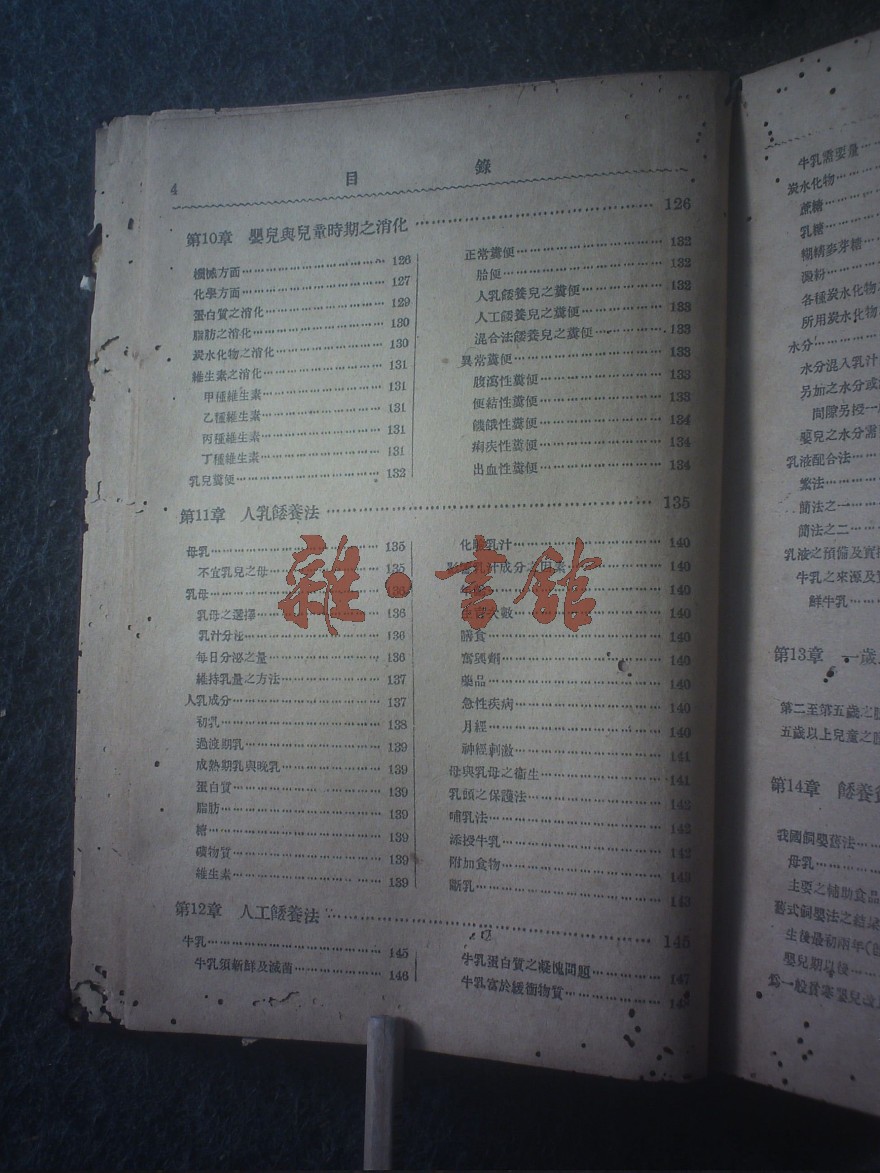 4
目 錄
第10章 嬰兒與兒童時期之消化 126
機械方面 126
化學方面 127
蛋白質之消化 129
脂肪之消化 130
炭水化物之消化 130
維生素之消化 131
甲種維生素 131
乙種維生素 131
丙種維生素 131
丁種維生素 131
乳兒糞便 132
正常糞便 132
胎便 132
人乳餧養兒之糞便 132
人工餧養兒之糞便 133
混合法餧養兒之糞便 133
異常糞便 133
腹瀉性糞便 133
便結性糞便 133
饑餓性糞便 134
痢疾性糞便 134
出血性糞便 134
第11章 人乳餧養法 135
母乳 135
不宜乳兒之母 135
乳母
乳母之選擇 136
乳汁分泌 136
每日分泌之量 136
維持乳量之方法 137
人乳成分 137
初乳 138
過渡期乳 139
成熟期乳與晚乳 139
蛋白質 139
脂肪 139
糖 139
礦物質 139
維生素 139
乳汁 140
乳汁成分之因素 140
140
次數 140
膳食 140
奮興劑 140
藥品 140
急性疾病 140
月經 140
神經刺激 141
母與乳母之衞生 141
乳頭之保護法 142
哺乳法 142
添授牛乳 142
附加食物 143
斷乳 143
第12章 人工餧養法 145
牛乳 145
牛乳須新鮮及滅菌 146
牛乳蛋白質之凝塊問題 147
牛乳富於緩衝物質
雜·書館
牛乳需要量
炭水化物
蔗糖
乳糖
糊精麥芽糖
澱粉
各種炭水化物
所用炭水化物
水分
水分混入乳汁
另加之水分或
間隙另授一
嬰兒之水分需
乳液配合法
繁法
簡法之一
簡法之二
乳液之預備及實
牛乳之來源及
鮮牛乳
第13章 一歲
第二至第五歲之
五歲以上兒童之
第14章 餧養
我國飼嬰舊法
母乳
主要之輔助食品
舊式飼嬰法之結
生後最初兩年
嬰兒期以後
為一般貧寒嬰兒改